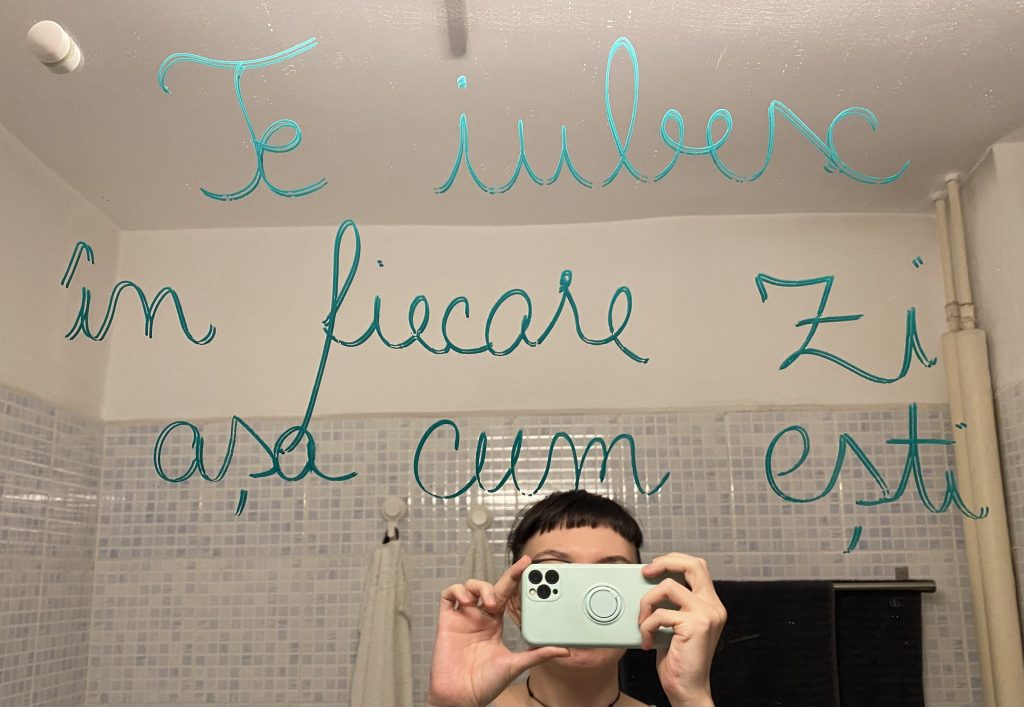 Te iubesc
în fiecare zi
așa cum ești